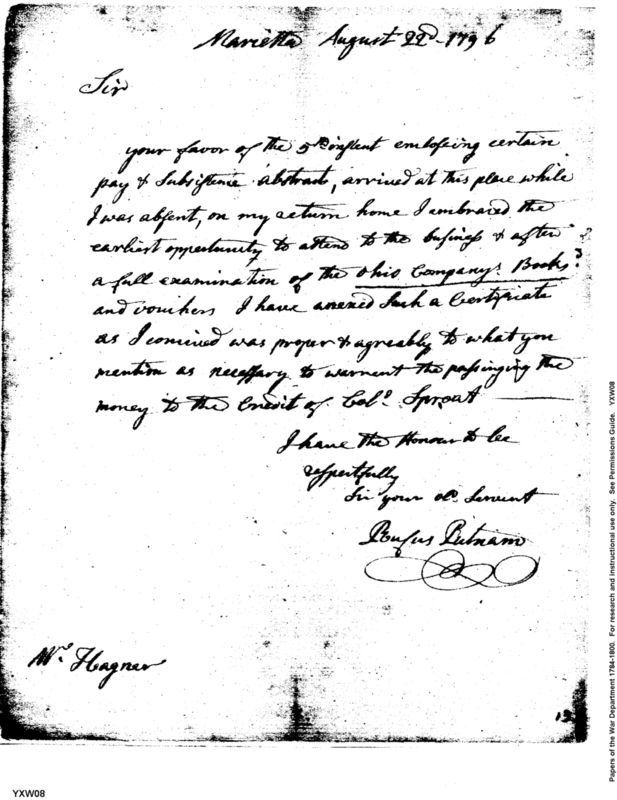 Marietta August 22d 1796
Sir
your favor of the 5th instent enclosing certain
pay & Subsistence abstract, arrived at this place while
I was absent, on my return home I embraced the
earliest oppertunity to attend to the business & after
a full examination of the Ohio Companys Books
and vouchers I have anexed Such a Certificate
as I conceived was proper & agreeably to what you
mention as necessary to warrent the passinging the
money to the Credit of Colo. Sproat
I have the Honour to be
respectfully
Sir your ob. Servent
Rufus Putnam
Mr. Hagner
13
YXW08
Papers of the War Department 1784-1800. For research and instructional use only. See Permissions Guide. YXW08